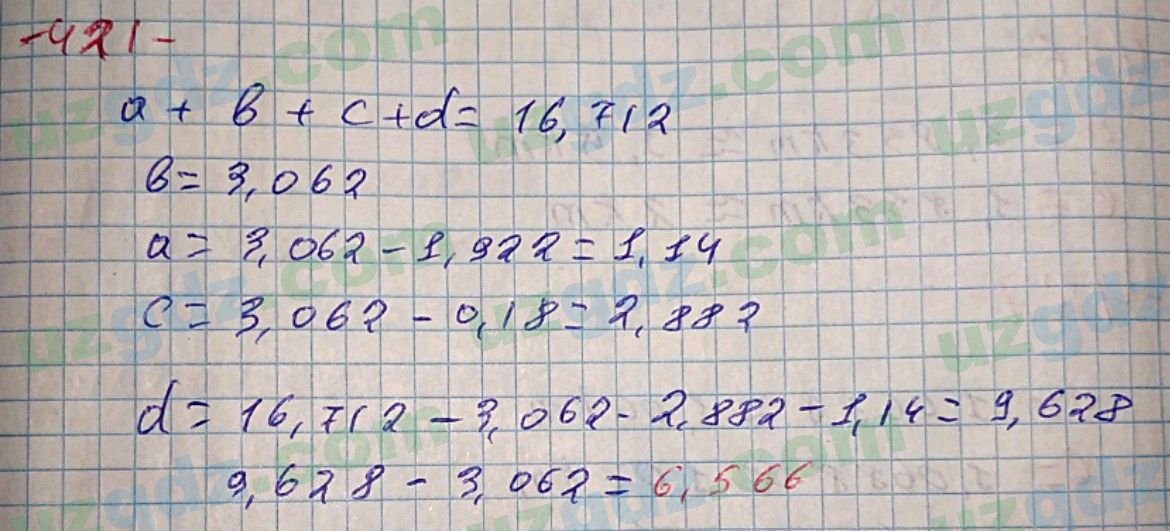 -421-
a + b + c + d = 16,712
b = 3,062
a = 3,062 - 1,922 = 1,14
c = 3,062 - 0,18 = 2,882
d = 16,712 - 3,062 - 2,882 - 1,14 = 9,628
9,628 - 3,062 = 6,566
uzgdz.com